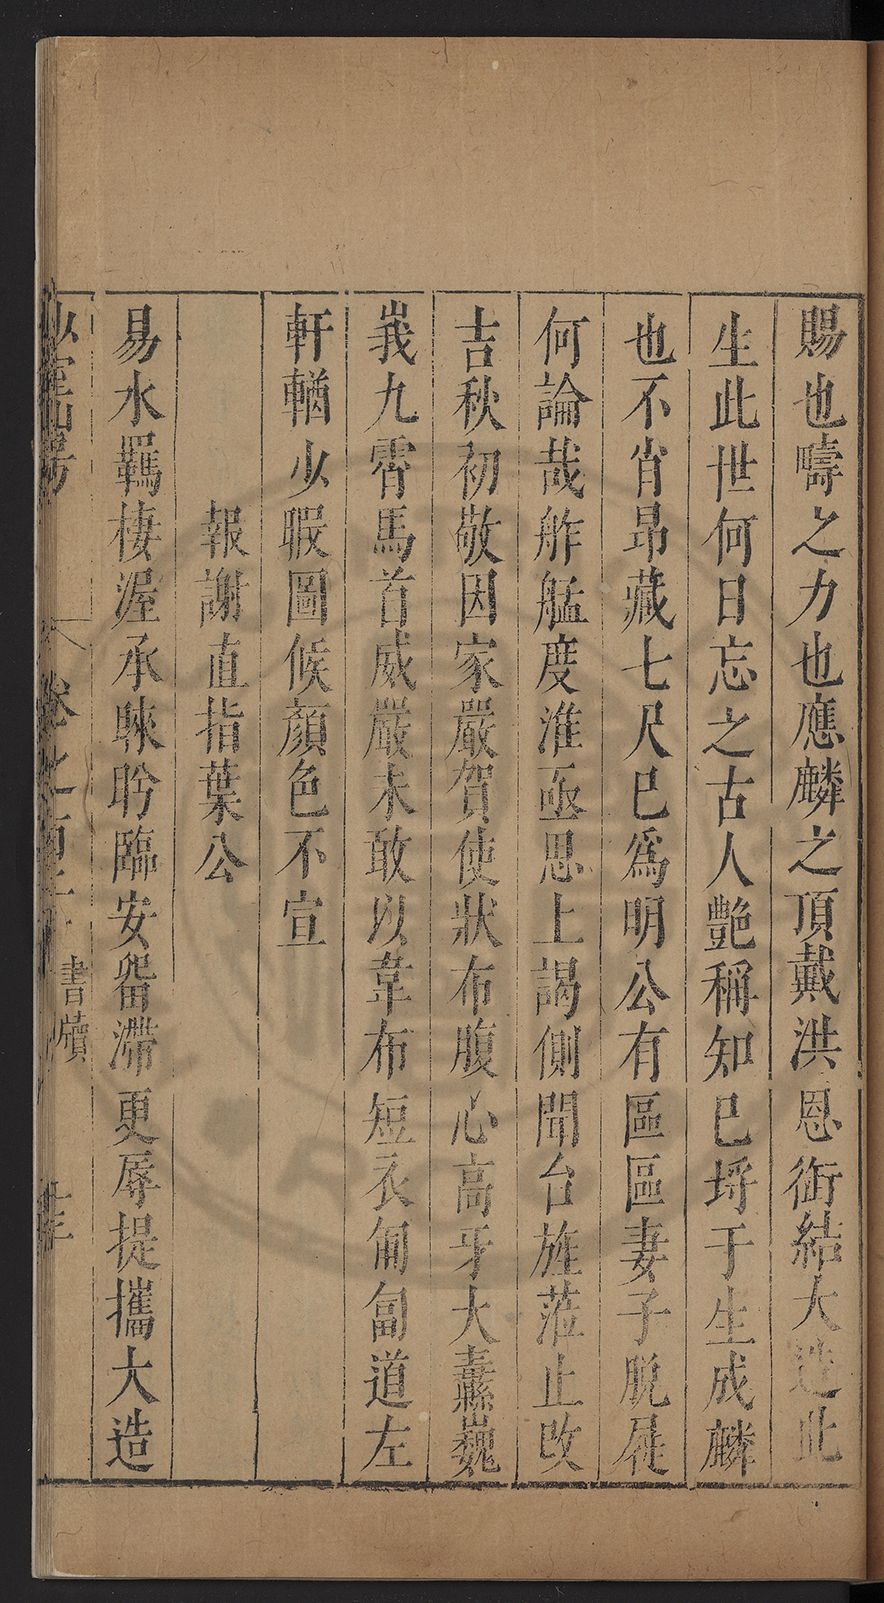 賜也疇之力也應麟之頂戴洪恩銜結大造此
生此世何日忘之古人艷稱知已埓于生成麟
也不肖昂藏七尺已爲明公有區區妻子脫屣
何論哉舴艋度淮亟思上謁側聞台旌蒞止改
吉秋初敬因家嚴賀使狀布腹心高牙大纛巍
峩九霄馬首威嚴未敢以韋布短衣匍匐道左
軒輶少暇圖候顏色不宣
報謝直指葉公
易水羈棲渥承睞盻臨安畱滯更辱提攜大造
少室山房
卷之百十
書牘